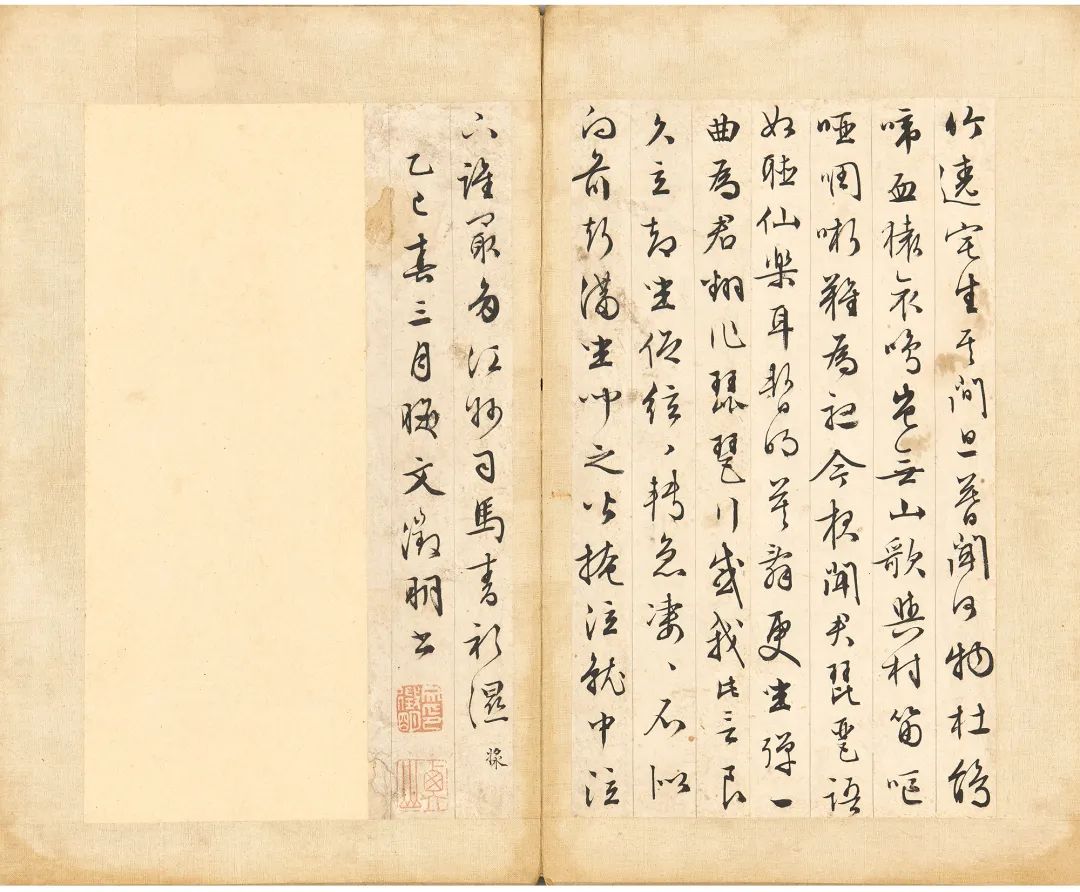 竹遶宅生其間旦暮聞何物杜鵑
啼血猿哀鳴豈無山歌與村笛嘔
啞啁哳難為聽今夜聞君琵琶語
如聽仙樂耳暫明莫辭更坐彈一
曲為君翻作琵琶行感我此言良
久立却坐促絃、轉急凄、不似
向前聲滿坐聞之皆掩泣就中泣
下誰最多江州司馬青衫濕
乙巳春三月晦文徵明書
文徵明印
衡山